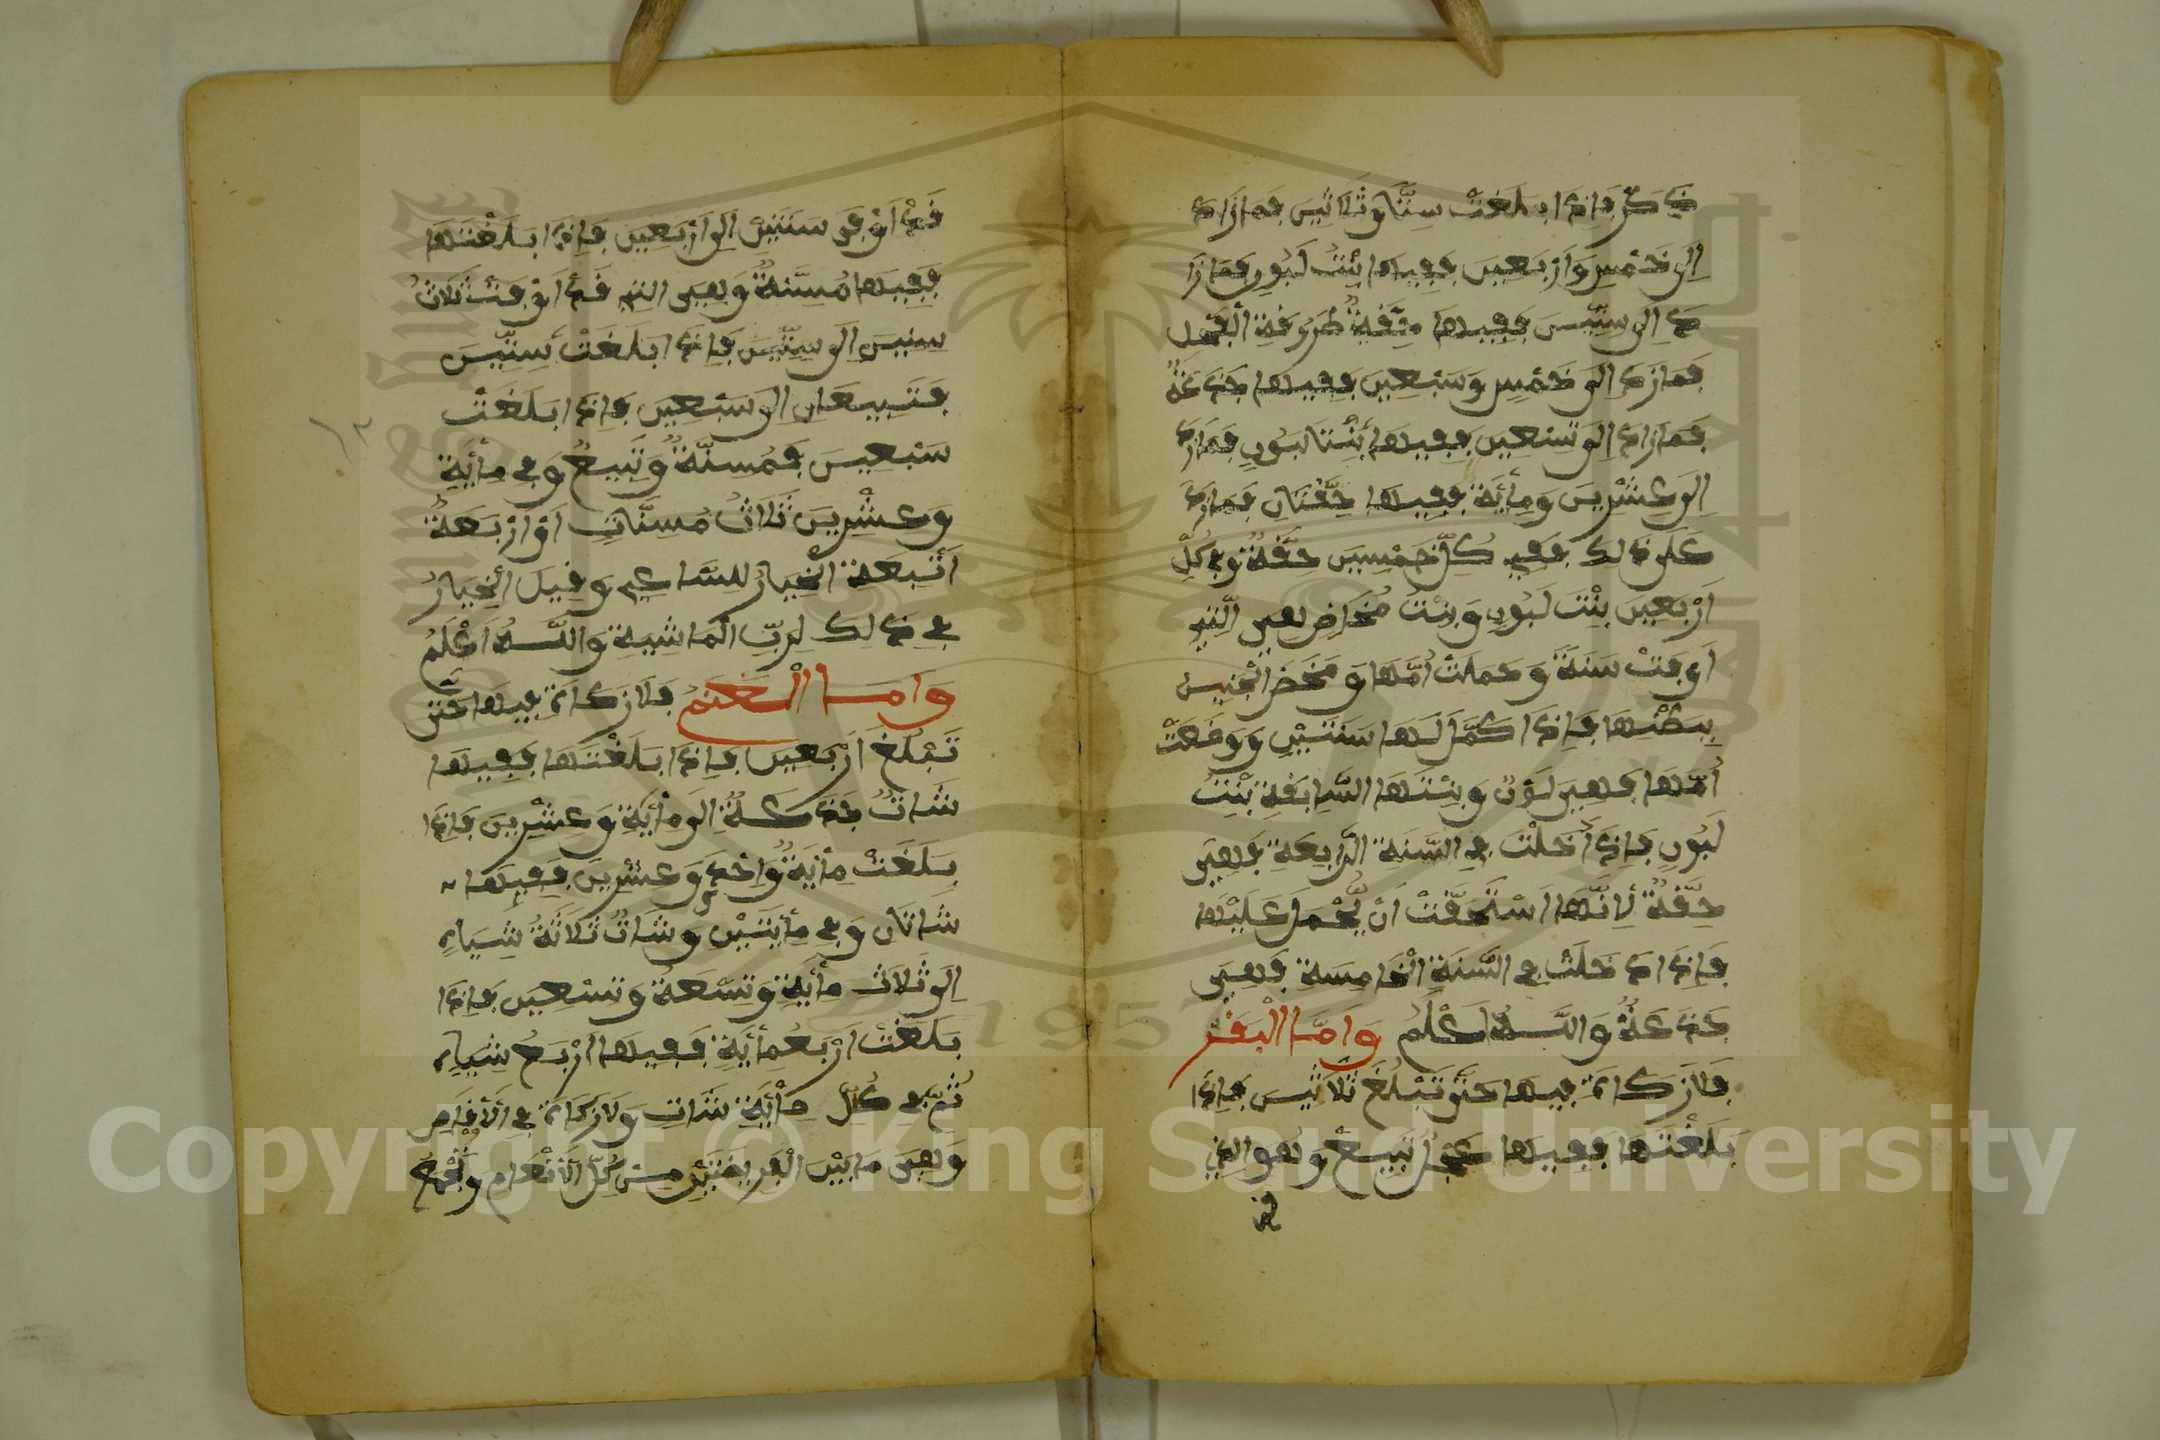 ذَكَرٌ فَإِذَا بَلَغَتْ سِتًّا وَثَلَاثِينَ فَمَا زَادَ
إِلَى خَمْسٍ وَأَرْبَعِينَ فَفِيهَا بِنْتُ لَبُونٍ فَمَا زَا
دَ إِلَى سِتِّينَ فَفِيهَا حِقَّةٌ طَرُوقَةُ الْفَحْلِ
فَمَا زَادَ إِلَى خَمْسٍ وَسَبْعِينَ فَفِيهَا جَذَعَةٌ
فَمَا زَادَ إِلَى تِسْعِينَ فَفِيهَا بِنْتَا لَبُونٍ فَمَا زَادَ
إِلَى عِشْرِينَ وَمِأَيَةٍ فَفِيهَا حِقَّتَانِ فَمَا زَادَ
عَلَى ذَلِكَ فَفِي كُلِّ خَمْسِينَ حِقَّةٌ وَفِي كُلِّ
أَرْبَعِينَ بِنْتُ لَبُونٍ وَبِنْتُ مُخَاضٍ هِيَ الَّتِي
أَوْفَتْ سَنَةً وَحَمَلَتْ أُمُّهَا وَمَخَضَ الْجَنِينُ
بِبَطْنِهَا فَإِذَا كَمَّلَ لَهَا سَنَتَيْنِ وَوَضَعَتْ
أُمُّهَا فَهِيَ لَبُونٌ وَبِنْتُهَا السَّابِقَةُ بِنْتُ
لَبُونٍ فَإِذَا دَخَلَتْ فِي السَّنَةِ الرَّابِعَةِ فَهِيَ
حِقَّةٌ لِأَنَّهَا اسْتَحَقَّتْ أَنْ يُّحْمَلَ عَلَيْهَا
فَإِذَا دَخَلَتْ فِي السَّنَةِ الْخَامِسَةِ فَهِيَ
جَذَعَةٌ وَاللَّهُ أَعْلَمُ وَأَمَّا الْبَقَرُ
فَلَا زَكَاةَ فِيهَا حَتَّى تَبْلُغَ ثَلَاثِينَ فَإِذَا
بَلَغَتْهَا فَفِيهَا عِجْلٌ تَبِيعٌ وَهُوَ الَّذِي
قد
قَدْ أَوْفَى سَنَتَيْنِ إِلَى أَرْبَعِينَ فَإِذَا بَلَغَتْهَا
فَفِيهَا مُسِنَّةٌ وَهِيَ الَّتِي قَدْ أَوْفَتْ ثَلَاثَ
سِنِينَ إِلَى سِتِّينَ فَإِذَا بَلَغَتْ سِتِّينَ
فَتَبِيعَانِ إِلَى سَبْعِينَ فَإِذَا بَلَغَتْ
سَبْعِينَ فَمُسِنَّةٌ وَتَبِيعٌ وَفِي مِأَيَةٍ
وَعِشْرِينَ ثَلَاثُ مُسِنَّاتٍ أَوْ أَرْبَعَةُ
أَتْبِعَةٍ الْخِيَارُ لِلسَّاعِي وَقِيلَ الْخِيَارُ
فِي ذَلِكَ لِرَبِّ الْمَاشِيَةِ وَاللَّهُ أَعْلَمُ
وَأَمَّا الْغَنَمُ فَلَا زَكَاةَ فِيهَا حَتَّى
تَبْلُغَ أَرْبَعِينَ فَإِذَا بَلَغَتْهَا فَفِيهَا
شَاتٌ جَذَعَةٌ إِلَى مِأَيَةٍ وَعِشْرِينَ فَإِذَا
بَلَغَتْ مِأَيَةً وَاحِدً وَعِشْرِينَ فَفِيهَا
شَاتَانِ وَفِي مِأَيَتَيْنِ وَشَاتٌ ثَلَاثَةُ شِيَاهٍ
إِلَى ثَلَاثِ مِأَيَةٍ وَتِسْعَةٍ وَتِسْعِينَ فَإِذَا
بَلَغَتْ أَرْبَعُمِأَيَةٍ فَفِيهَا أَرْبَعُ شِيَاهٍ
ثُمَّ فِي كُلِّ مِأَيَةٍ شَاتٌ وَلَا زَكَاةَ فِي الْأَوْقَاصِ
وَهِيَ مَا بَيْنَ الْفَرِيضَتَيْنِ مِنْ كُلِّ الْأَنْعَامِ وَتُجْمَعُ
Copyright © King Saud University
1957